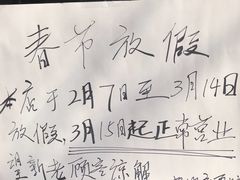 春节放假
本店于2月7日至3月14日
放假,3月15日起正常营业
望新老顾客谅解